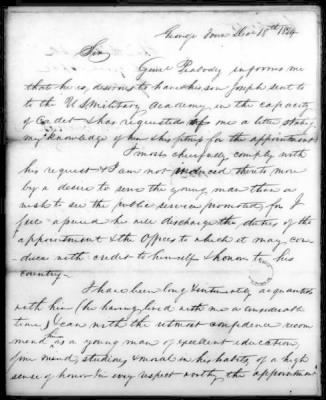 George Town Dec 18th 1824
Sir
Genl Peabody informs me
that he is desirous to have his son Joseph sent to
to the U S Military Academy in the capacity
of Cadet & has requested of me a letter stating
my knowledge of him & his fitness for the appointment
I most cheerfully comply with
his request & I am not induced thereto more
by a desire to serve the young man than a
wish to see the public service promoted, for I
feel assured he will discharge the duties of the
appointment & the Offices to which it may con
duce with credit to himself & honor to his
country—
I have been long & intimately acquainted
with him (he having lived with me a considerable
time,) & can with the utmost confidence recom
mend him as a young man of excellent education,
fine mind, studious & moral in his habits, of a high
sense of honor & in every respect worthy the appointment